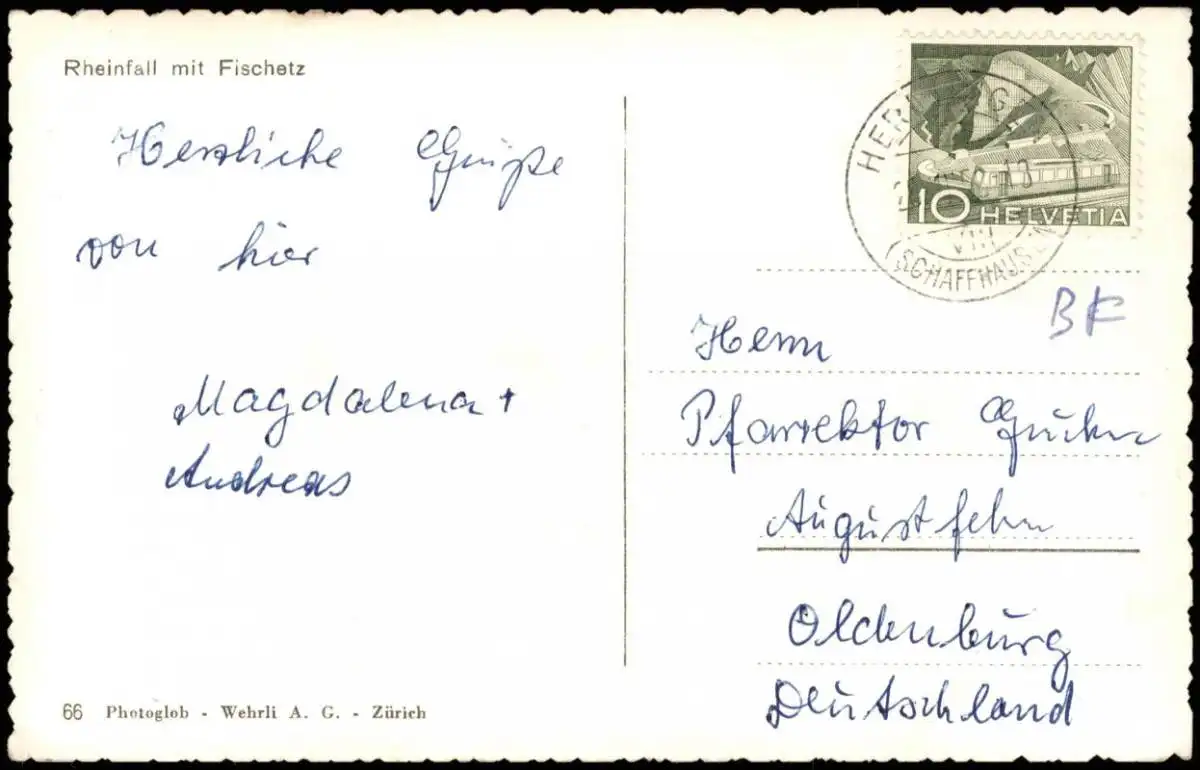 Rheinfall mit Fischetz
Herzliche Grüße
von hier
Magdalena +
Andreas
66 Photoglob - Wehrli A. G. - Zürich
10 HELVETIA
VIII
(SCHAFFHAUSEN)
BK
Herrn
Pfarrektor
Augustfehn
Oldenburg
Deutschland